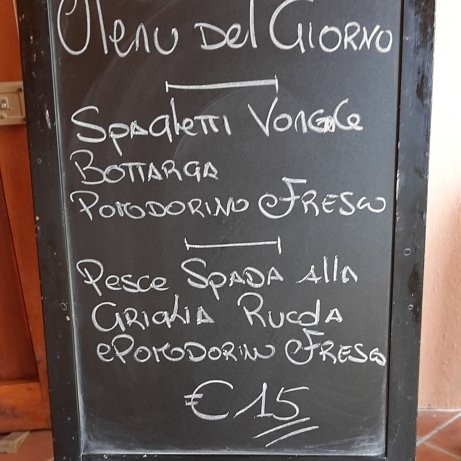 Menu Del GIORNO
SpaGhetti VonGole
BOTTARGA
POMODORINO FRESCO
Pesce SPADA alla
GRIGLIA RUCOLA
e POMODORINO FRESCO
€ 15